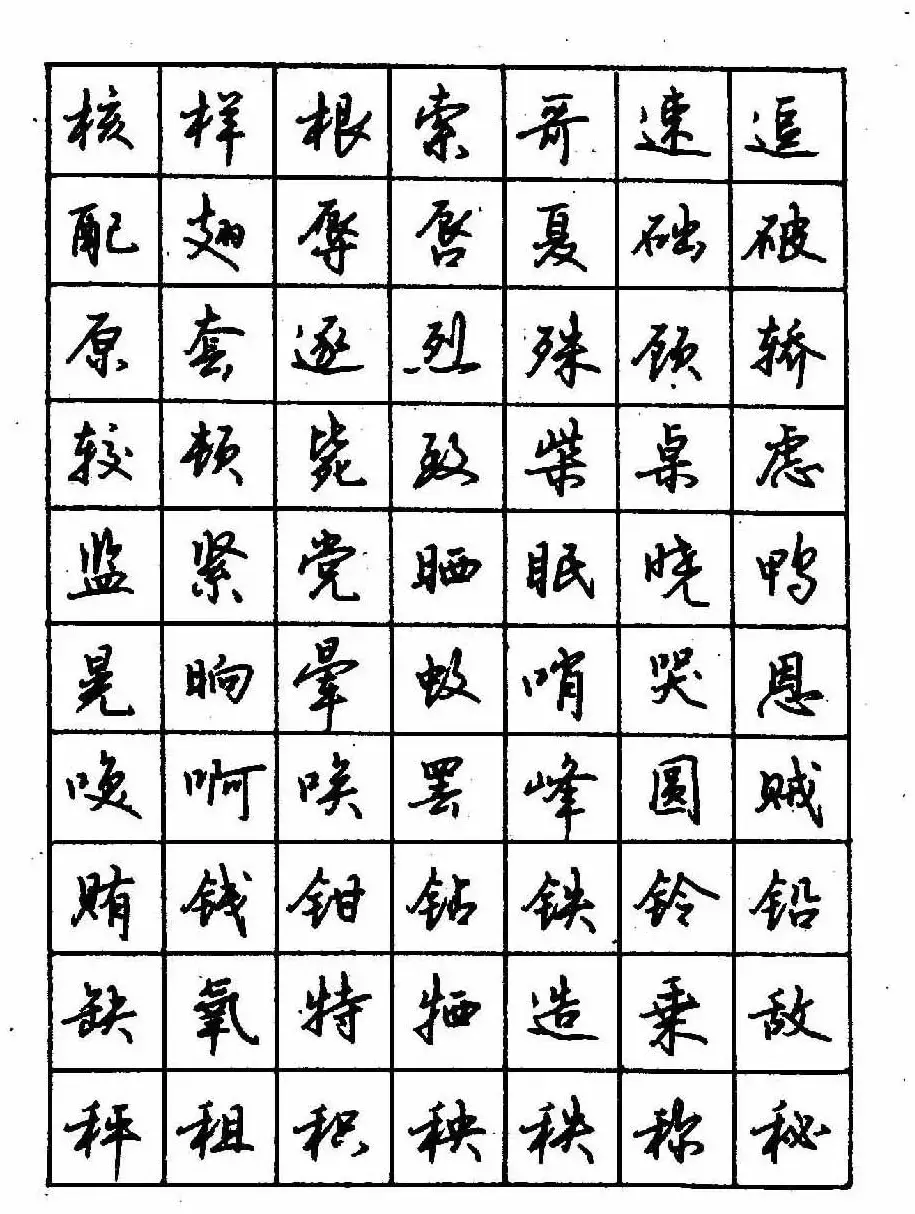 核样根索哥速逗
配翅辱唇夏础破
原套逐烈殊顾轿
较顿毙致柴桌虑
监紧党晒眠晓鸭
晃晌晕蚊哨哭恩
唤啊唉罢峰圆贼
贿钱钳钻铁铃铅
缺氧特牺造乘敌
秤租积秧秩称秘